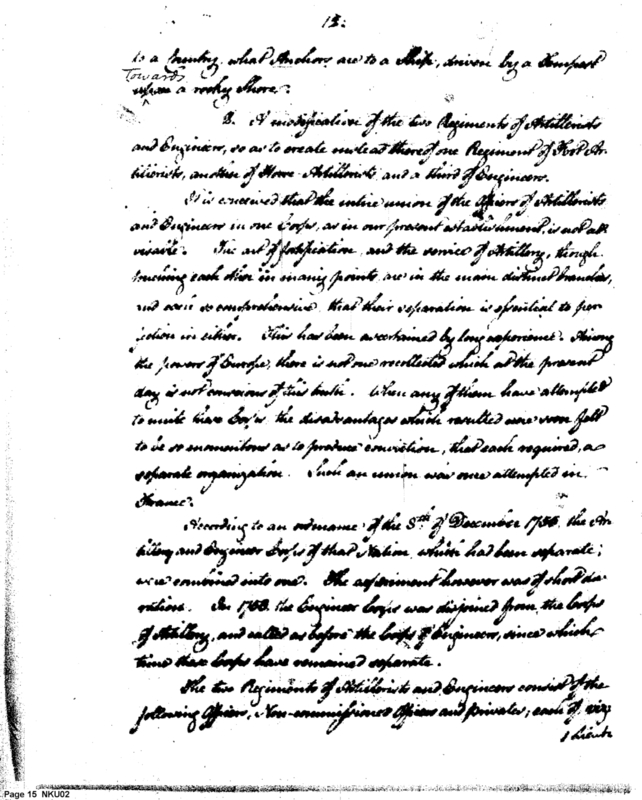 15.
to a Country, what Anchors are to a Ship, driven by a Tempest
Towards
upon a rocky Shore.
2. A modification of the two Regiments of Artillerists
and Engineers, so as to create instead thereof one Regiment of Foot Ar-
tillerists, another of Horse Artillerists and a third of Engineers.
It is conceived that the intire union of the Officers of Artillerists
and Engineers in one Corps, as in our present establishment, is not ad-
visable. The art of fortification, and the service of Artillery, though
touching each other in many points, are in the main distinct branches,
and each so comprehensive, that their separation is essential to per-
fection in either. This has been ascertained by long experience. Among
the powers of Europe, there is not one recollected which at the present
day is not conscious of this truth. When any of them have attempted
to unite these Corps, the disadvantages which resulted were soon felt
to be so momentous as to produce conviction, that each required, a
separate organization. Such an union was once attempted in
France.
According to an ordinance of the 8th of December 1755, the Ar-
tillery and Engineer Corps of that Nation, which had been separate;
were combined into one. The experiment however was of short du-
ration. In 1758 the Engineer Corps was disjoined from the Corps
of Artillery, and called as before the Corps of Engineers, since which
time these Corps have remained separate.
The two Regiments of Artillerists and Engineers consist of the
following Officers, Non-commissioned Officers and privates; each of, viz:
1 Lieut:
Page 15 NKU02